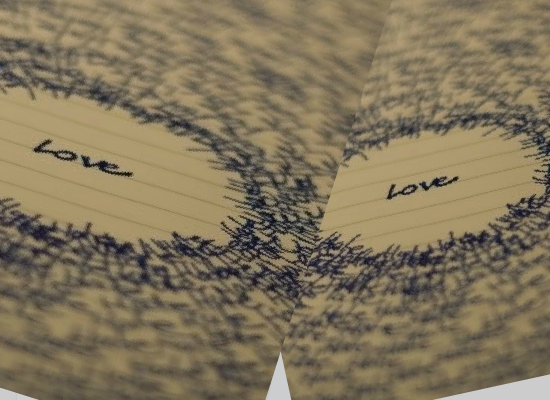 Love.
Love.